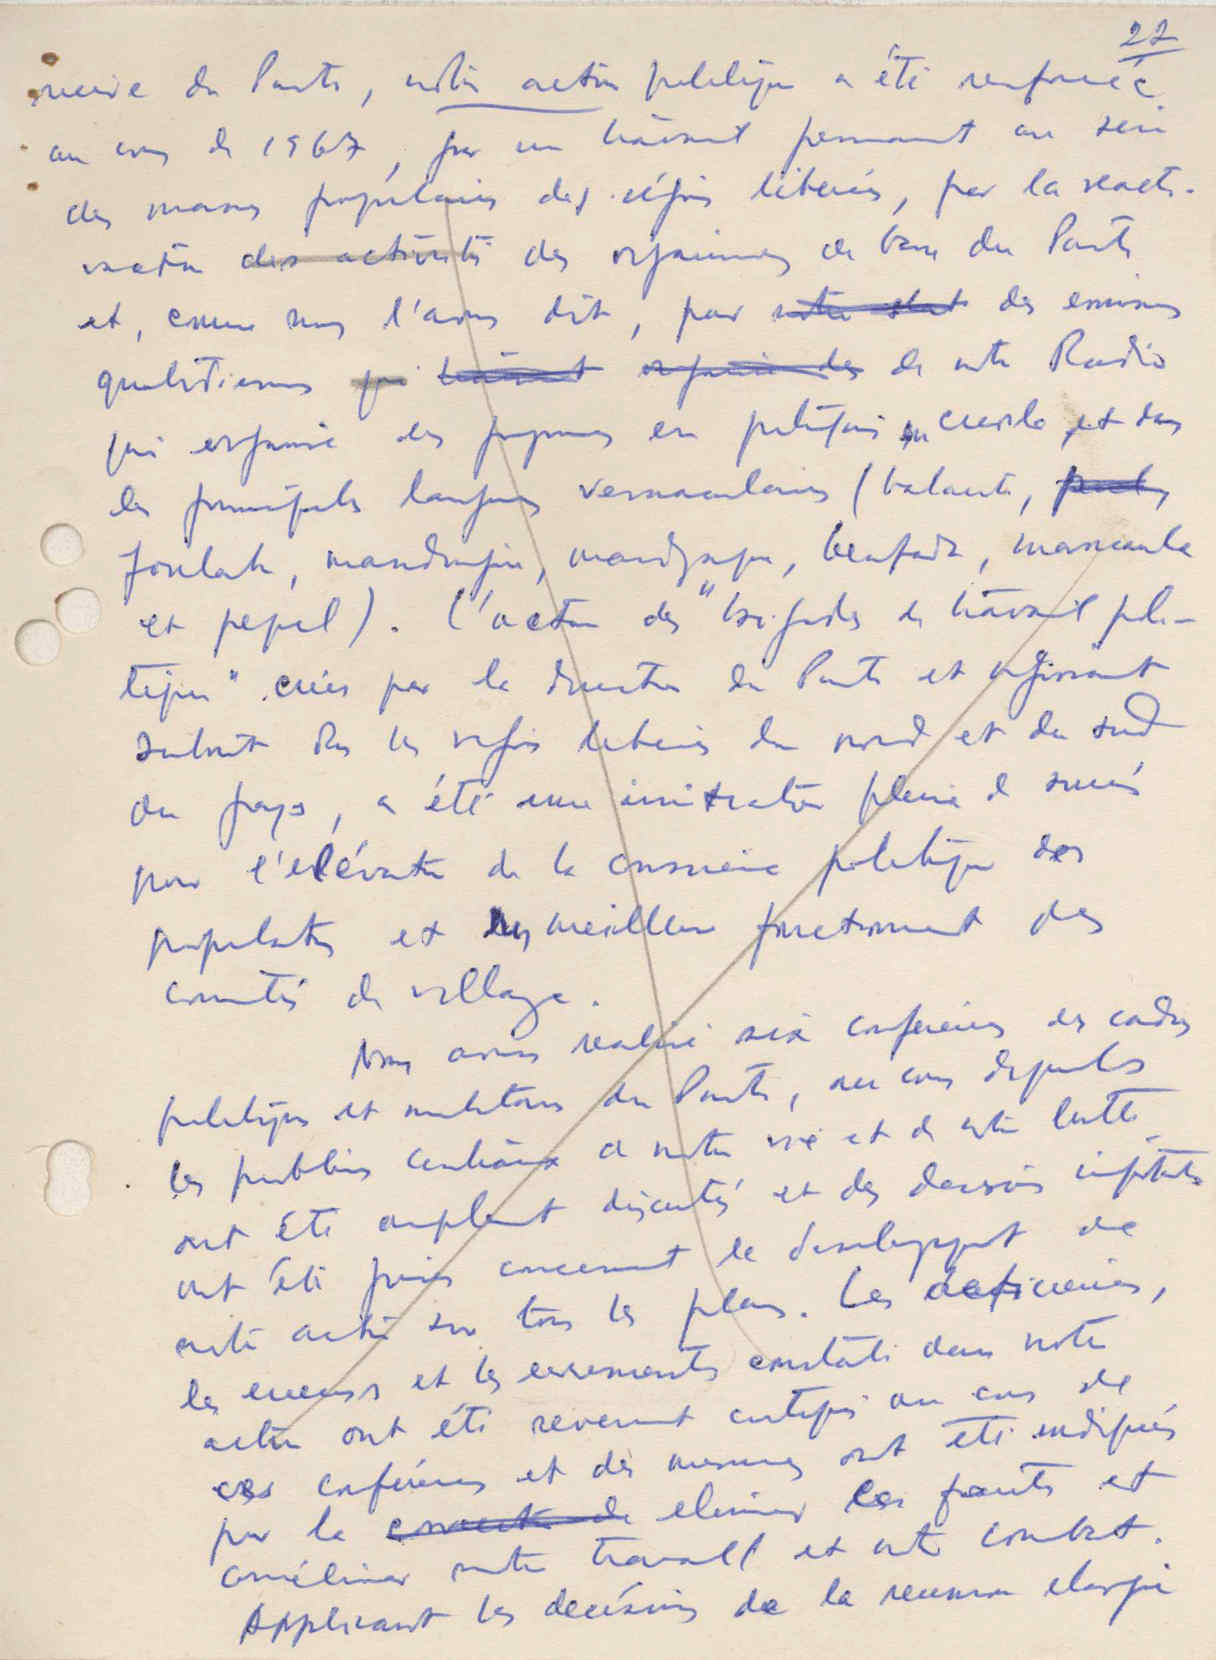 22
du Parti, notre action politique a été renforcée
au cours de 1967, par un travail permanent au sein
des masses populaires des régions libérées, par la réacti-
vation des activités des organismes de base du Parti
et, comme nous l'avons dit, par des emissions
quotidiennes de notre Radio
qui organise des programmes en portugais, en creolo et dans
les principales langues vernaculaires (balante,
foulah, mandingue, mandjaque, beafada, mancanha
et pepel). L'action des "brigades de travail poli-
tique" créées par la direction du Parti et agissant
surtout dans les régions libérées du nord et du sud
du pays, a été une initiative pleine de succès
pour l'élévation de la conscience politique des
populations et meilleur fonctionnement des
comités de village.
Nous avons réalisé six conférences des cadres
politiques et militaires du Parti, au cours desquelles
les problèmes centraux de notre vie et de notre lutte
ont été amplement discutés et des décisions importantes
ont été prises concernant le développement de
notre action sur tous les plans. Les déficiences,
les erreurs et les errements constatés dans notre
action ont été sévèrement critiqués au cours de
ces conférences et des mesures ont été indiquées
pour éliminer les fautes et
améliorer notre travail et notre combat.
Appliquant les décisions de la réunion élargie